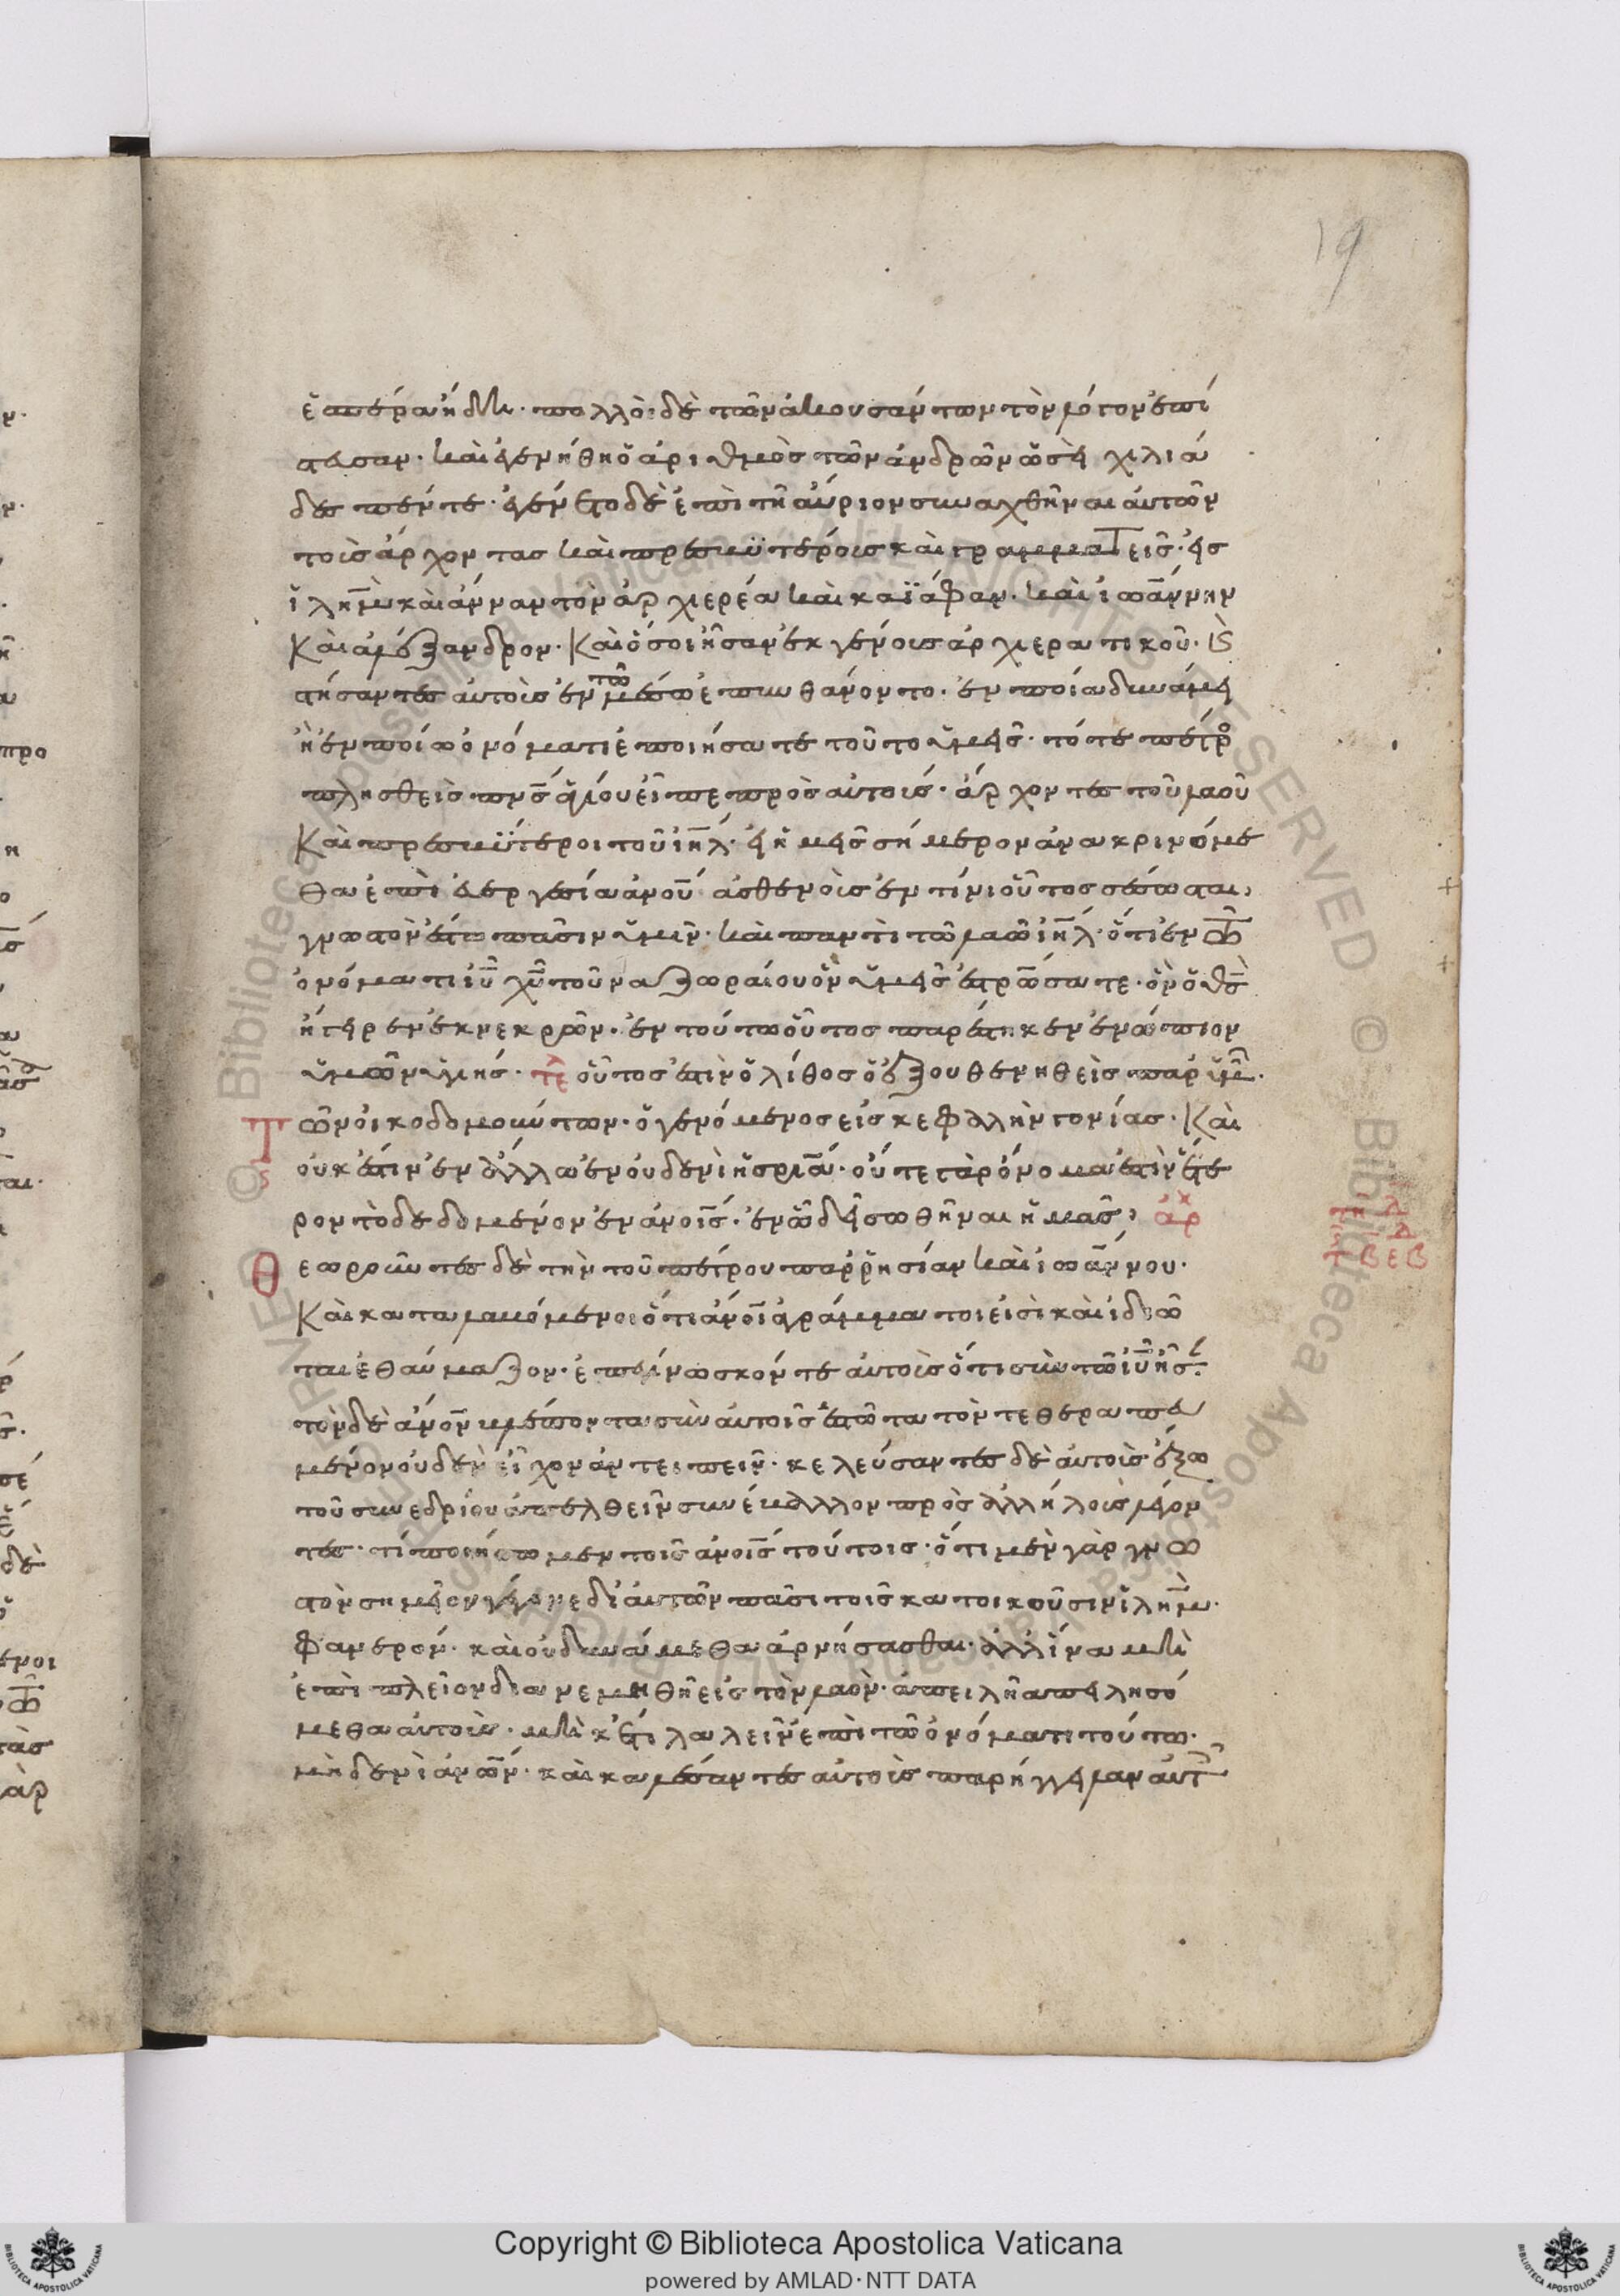 19
ἑσπέρα ἤδη· πολλοὶ δὲ τῶν ἀκουσάντων τὸν λόγον ἐπί
στευσαν· καὶ ἐγενήθη ὁ ἀριθμὸς τῶν ἀνδρῶν ὡσεὶ χιλιά
δες πέντε· ἐγένετο δὲ ἐπὶ τὴν αὔριον συναχθῆναι αὐτῶν
τοὺς ἄρχοντας καὶ πρεσβυτέρους καὶ γραμματεῖς· εἰς
ἰλημ καὶ ἄνναν τὸν ἀρχιερέα καὶ καϊάφαν· καὶ ἰωάννην
καὶ ἀλέξανδρον· καὶ ὅσοι ἦσαν ἐκ γένους ἀρχιερατικοῦ· κ
στήσαντες αὐτοὺς ἐν τῶ μέσω ἐπυνθάνοντο· ἐν ποία δυνάμει
ἢ ἐν ποίω ὀνόματι ἐποιήσατε τοῦτο ὑμεῖς· τότε πέτρο
πλησθεὶς πνς ἁγίου εἶπε πρὸς αὐτούς· ἄρχοντες τοῦ λαοῦ
καὶ πρεσβύτεροι τοῦ ιηλ· εἰ ἡμεῖς σήμερον ἀνακρινόμε
θα ἐπὶ εὐεργεσία ἀνου ἀσθενοῦς ἐν τίνι οὗτος σέσωσται,
γνωστὸν ἔστω πᾶσιν ὑμῖν· καὶ παντὶ τῶ λαῶ ιηλ· ὅτι ἐν τῶ
ὀνόματι ιυ χυ τοῦ ναζωραίου ὃν ὑμεῖς ἐσταυρώσατε· ὃν ὁ θς
ἤγειρεν ἐκ νεκρῶν· ἐν τούτω οὗτος παρέστηκεν ἐνώπιον
ὑμῶν ὑγιής· τε οὗτός ἐστιν ὁ λίθος ὁ ἐξουθενηθεὶς παρ ὑμ
Τῶν οἰκοδομούντων· ὁ γενόμενος εἰς κεφαλὴν γωνίας· καὶ
οὐκ ἔστιν ἐν ἄλλω ἐν οὐδενὶ ἡ σρια· οὔτε γὰρ ὄνομα ἐστὶν ἕτε
ρον τὸ δεδομένον ἐν ἀνοις· ἐν ᾧ δεῖ σωθῆναι ἡμᾶς, ἀρχ
Θεωροῦντες δὲ τὴν τοῦ πέτρου παρρησίαν καὶ ἰωάννου·
καὶ καταλαβόμενοι ὅτι ἀνοι ἀγράμματοι εἰσὶ καὶ ἰδιῶ
ται ἐθαύμαζον· ἐπεγίνωσκόν τε αὐτοὺς ὅτι σὺν τῶ ιυ ἦσ·
τὸν δὲ ἀνον βλέποντα σὺν αὐτοῖς ἑστῶτα τὸν τεθεραπευ
μένον οὐδὲν εἶχον ἀντειπεῖν· κελεύσαντες δὲ αὐτοὺς ἔξω
τοῦ συνεδρίου ἀπελθεῖν συνέβαλλον πρὸς ἀλλήλους λέγον
τες· τί ποιήσωμεν τοῖς ἀνοις τούτοις· ὅτι μὲν γὰρ γνω
στὸν σημεῖον γέγονε δι αὐτῶν πᾶσι τοῖς κατοικοῦσιν ἰλημ·
φανερόν· καὶ οὐ δυνάμεθα ἀρνήσασθαι· ἀλλ ἵνα μὴ
ἐπὶ πλεῖον διανεμηθῆ εἰς τὸν λαὸν· ἀπειλῆ ἀπειλησό
μεθα αὐτοὺς· μὴ κέτι λαλεῖν ἐπὶ τῶ ὀνόματι τούτω·
μηδενὶ ἀνων· καὶ καλέσαντες αὐτοὺς παρήγγειλαν αὐτ